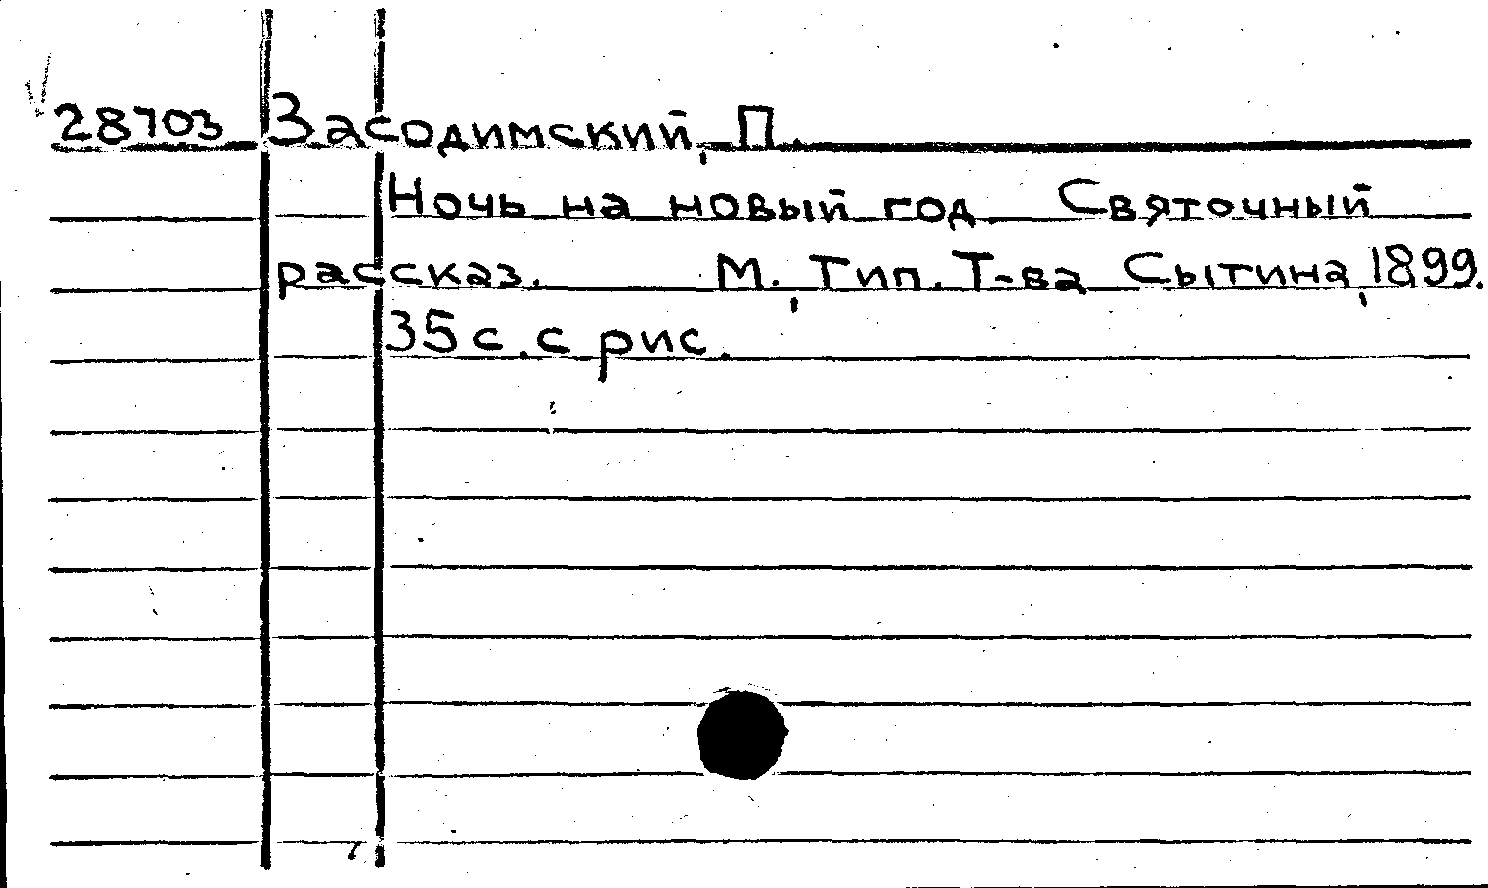 28703 Засодимский, П.
Ночь на новый год. Святочный
рассказ. М., Тип. Т-ва Сытина, 1899.
35 с. с рис.